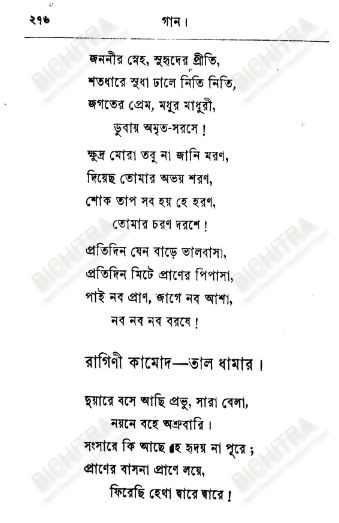 ২৭৬ গান।
জননীর স্নেহ, সুহৃদের প্রীতি,
শতধারে সুধা ঢালে নিতি নিতি,
জগতের প্রেম, মধুর মাধুরী,
ডুবায় অমৃত-সরসে!
ক্ষুদ্র মোরা তবু না জানি মরণ,
দিয়েছ তোমার অভয় শরণ,
শোক তাপ সব হয় হে হরণ,
তোমার চরণ দরশে!
প্রতিদিন যেন বাড়ে ভালবাসা,
প্রতিদিন মিটে প্রাণের পিপাসা,
পাই নব প্রাণ, জাগে নব আশা,
নব নব নব বরষে!
রাগিণী কামোদ—তাল ধামার।
দুয়ারে বসে আছি প্রভু, সারা বেলা,
নয়নে বহে অশ্রুবারি।
সংসারে কি আছে হে হৃদয় না পূরে;
প্রাণের বাসনা প্রাণে লয়ে,
ফিরেছি হেথা দ্বারে দ্বারে!
BICHITRA
BICHITRA
BICHITRA
BICHITRA
BICHITRA
BICHITRA